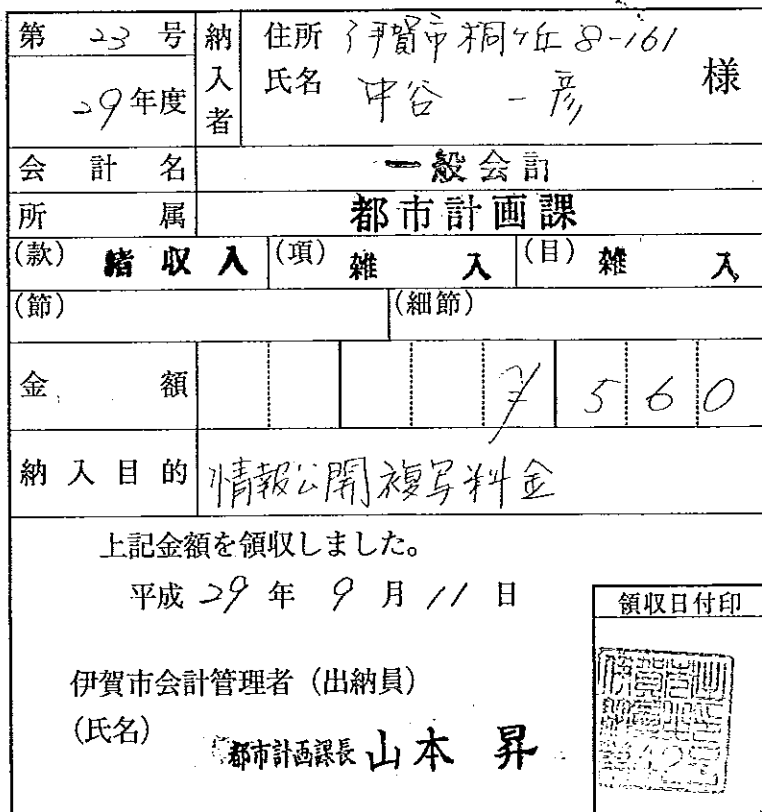 第 23 号
29年度
納入者
住所 伊賀市桐ケ丘8-161
氏名 中谷 一彦 様
会計名 一般会計
所属 都市計画課
(款) 諸収入 (項) 雑入 (目) 雑入
(節) (細節)
金額 ¥560
納入目的 情報公開複写料金
上記金額を領収しました。
平成 29 年 9 月 11 日
領収日付印
伊賀市会計管理者(出納員)
(氏名)
都市計画課長 山本 昇